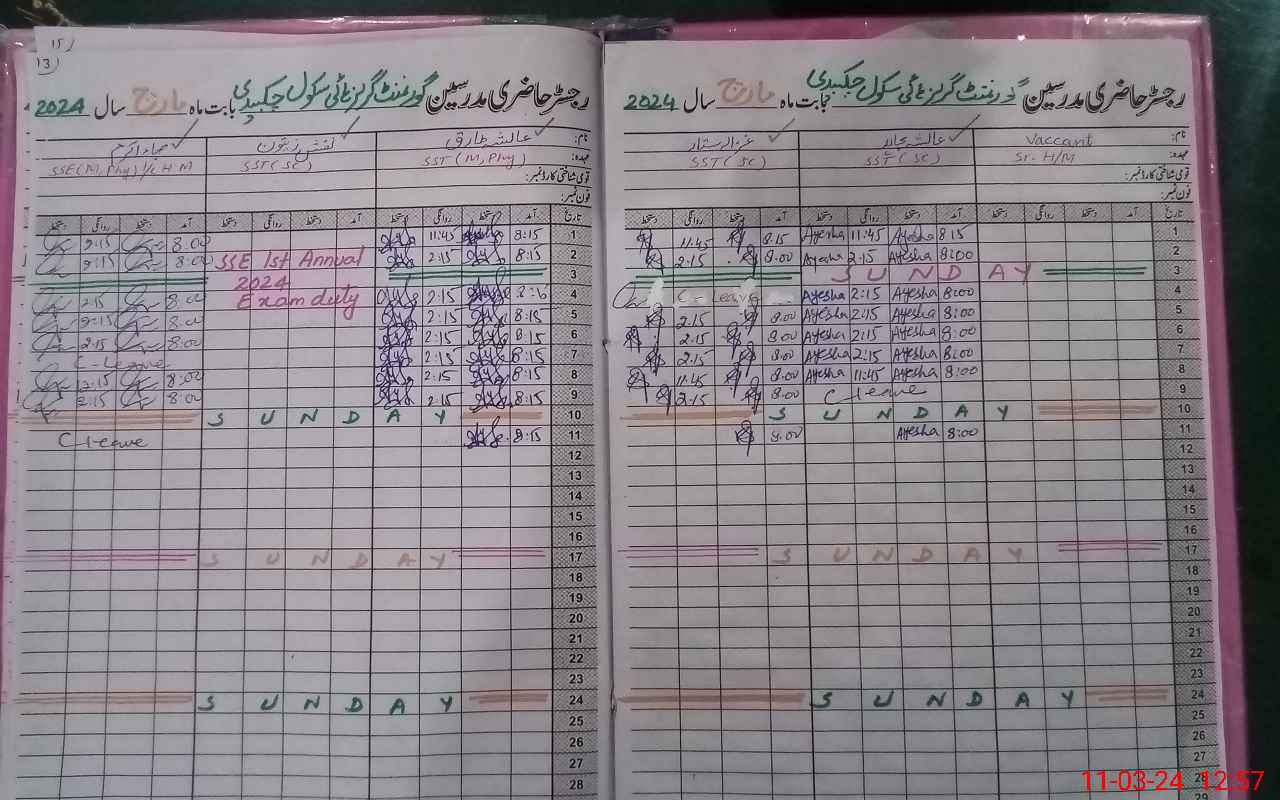 15/
13
رجسٹر حاضری مدرسین گورنمنٹ گرلز ہائی سکول چکبیدی بابت ماہ مارچ سال 2024
عائشہ طارق
SST (M, Phy)
SST (SC)
SSE (M, Phy) I/c H M
قومی شناختی کارڈ نمبر:
فون نمبر:
تاریخ آمد دستخط روانگی دستخط آمد دستخط روانگی دستخط آمد دستخط روانگی دستخط
8.00 2:15 11:45 8:15 1
8:00 2:15 SSE 1st Annual 2:15 8:15 2
2024 3
2:15 8:00 Exam duty 2:15 4
2:15 8.00 2:15 8:15 5
2:15 8:00 2:15 8:15 6
C-Leave 2:15 8:15 7
12:15 8:00 2:15 8:15 8
2:15 8:00 2:15 8:15 9
S U N D A Y 10
C leave 8:15 11
12
13
14
15
16
S U N D A Y 17
18
19
20
21
22
23
S U N D A Y 24
25
26
27
28
رجسٹر حاضری مدرسین گورنمنٹ گرلز ہائی سکول چکبیدی بابت ماہ مارچ سال 2024
نام: Vaccant
عہدہ: Sr. H/M
SST (SC)
SST (SC)
قومی شناختی کارڈ نمبر:
فون نمبر:
تاریخ آمد دستخط روانگی دستخط آمد دستخط روانگی دستخط آمد دستخط روانگی دستخط
11:45 8.15 Ayesha 11:45 Ayesha 8.15 1
2:15 8.00 Ayesha 2:15 Ayesha 8:00 2
S U N D A Y 3
C-Leave Ayesha 2:15 Ayesha 8:00 4
2.15 8.00 Ayesha 2:15 Ayesha 8:00 5
2.15 8.00 Ayesha 2:15 Ayesha 8:00 6
2.15 8.00 Ayesha 2:15 Ayesha 8:00 7
11:45 8.00 Ayesha 11:45 Ayesha 8:00 8
2.15 8.00 C leave 9
S U N D A Y 10
8.00 Ayesha 8:00 11
12
13
14
15
16
S U N D A Y 17
18
19
20
21
22
23
S U N D A Y 24
25
26
27
28
29
11-03-24 12:57